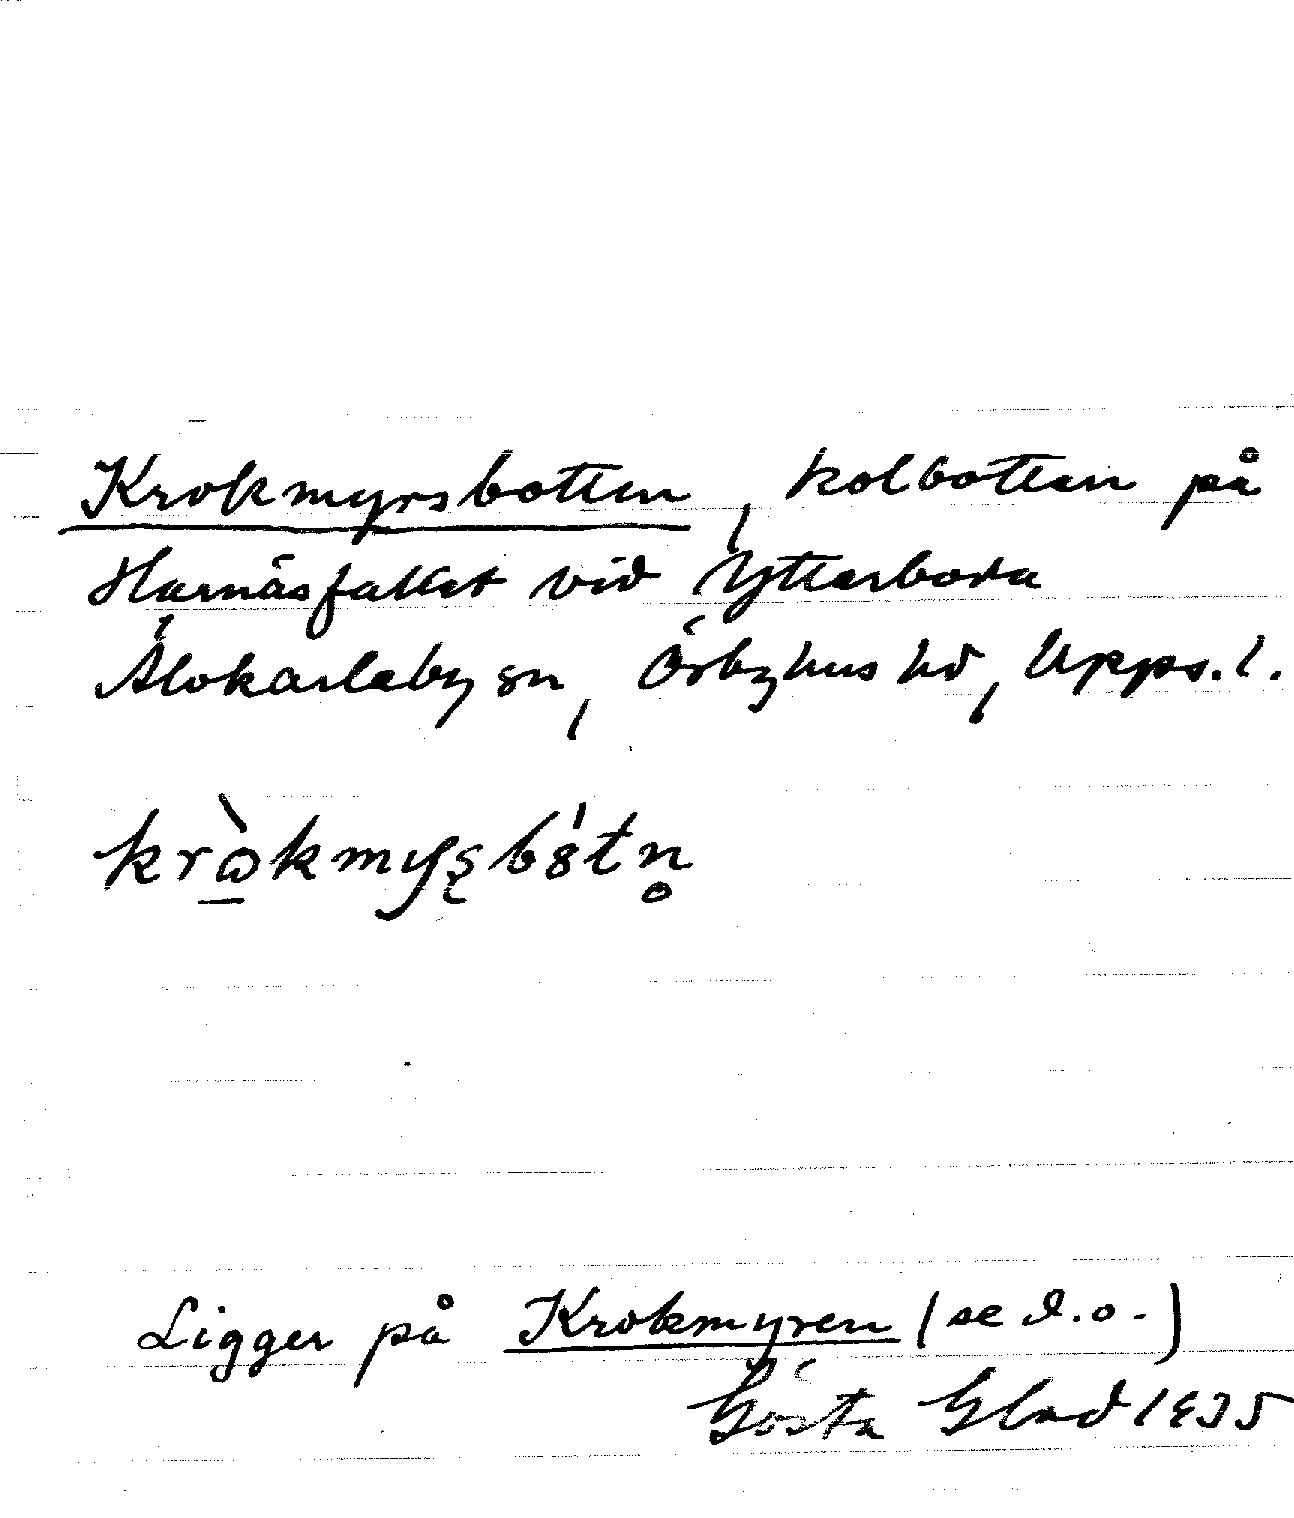 Krokmyrsbotten, kolbotten på
Harnäsfallet vid Ytterboda
Älvkarleby sn, Örbyhus hd, Upps. l.
kròkmyʂbótn̥
Ligger på Krokmyren (se d.o.)
Gösta Glad 1935